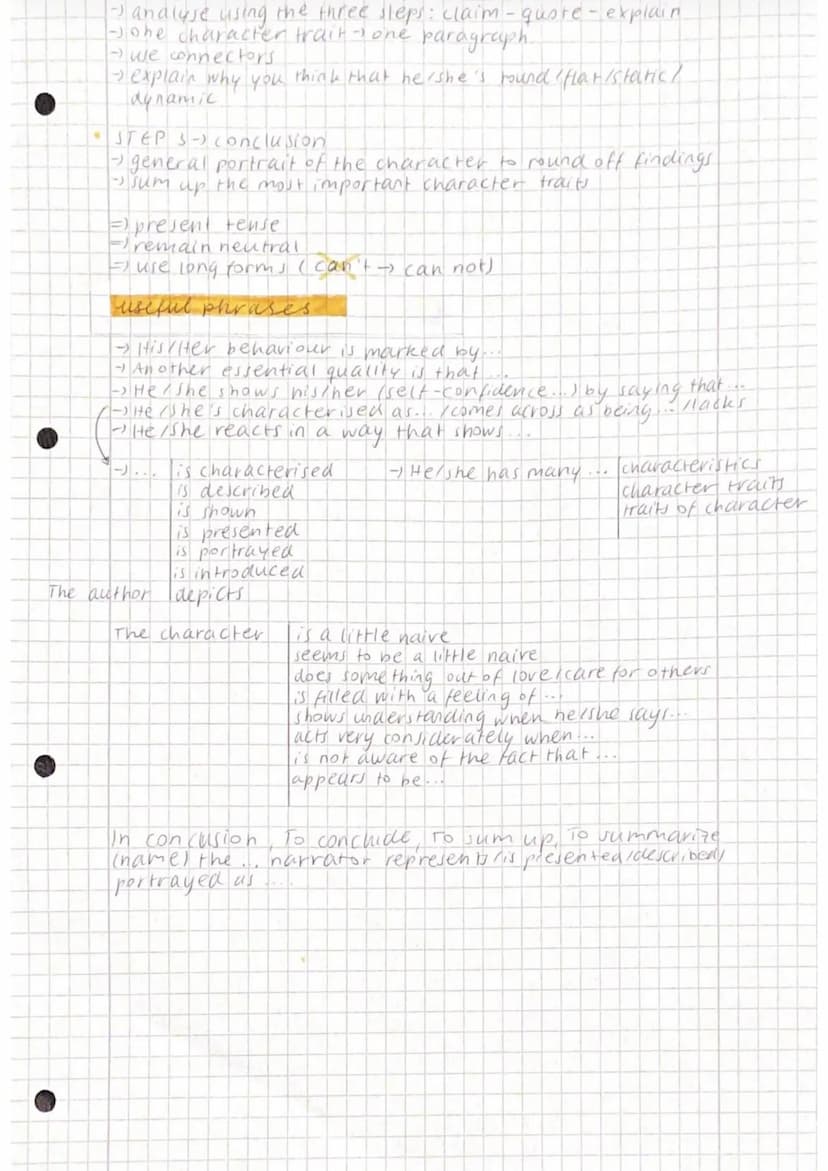 -> analyse using the three steps: claim - quote - explain
-> one character trait -> one paragraph
-> use connectors
-> explain why you think that he/she's round/flat/static/
dynamic
• STEP 3 -> conclusion
-> general portrait of the character to round off findings
-> sum up the most important character traits
=> present tense
=> remain neutral
=> use long forms (can't -> can not)
useful phrases
-> His/Her behaviour is marked by...
-> Another essential quality is that...
-> He/she shows his/her (self-confidence...) by saying that...
-> He/she's characterised as.../comes across as being.../lacks
-> He/she reacts in a way that shows...
-> ... is characterised
is described
is shown
is presented
is portrayed
is introduced
The author depicts
-> He/she has many... characteristics
character traits
traits of character
The character is a little naive
seems to be a little naive
does something out of love/care for others
is filled with a feeling of...
shows understanding when he/she says...
acts very considerately when...
is not aware of the fact that...
appears to be...
In conclusion, To conclude, To sum up, To summarize
(name) the ... narrator represents/is presented/described/
portrayed as ....